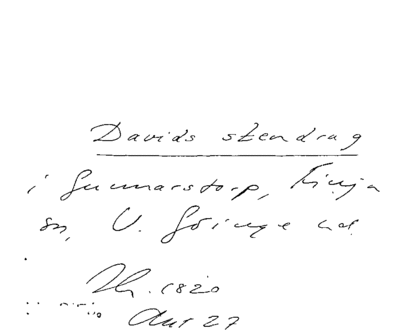 Davids stendrag
i Gunnarstorp, Finja
sn, V. Göinge hd.
1820
27